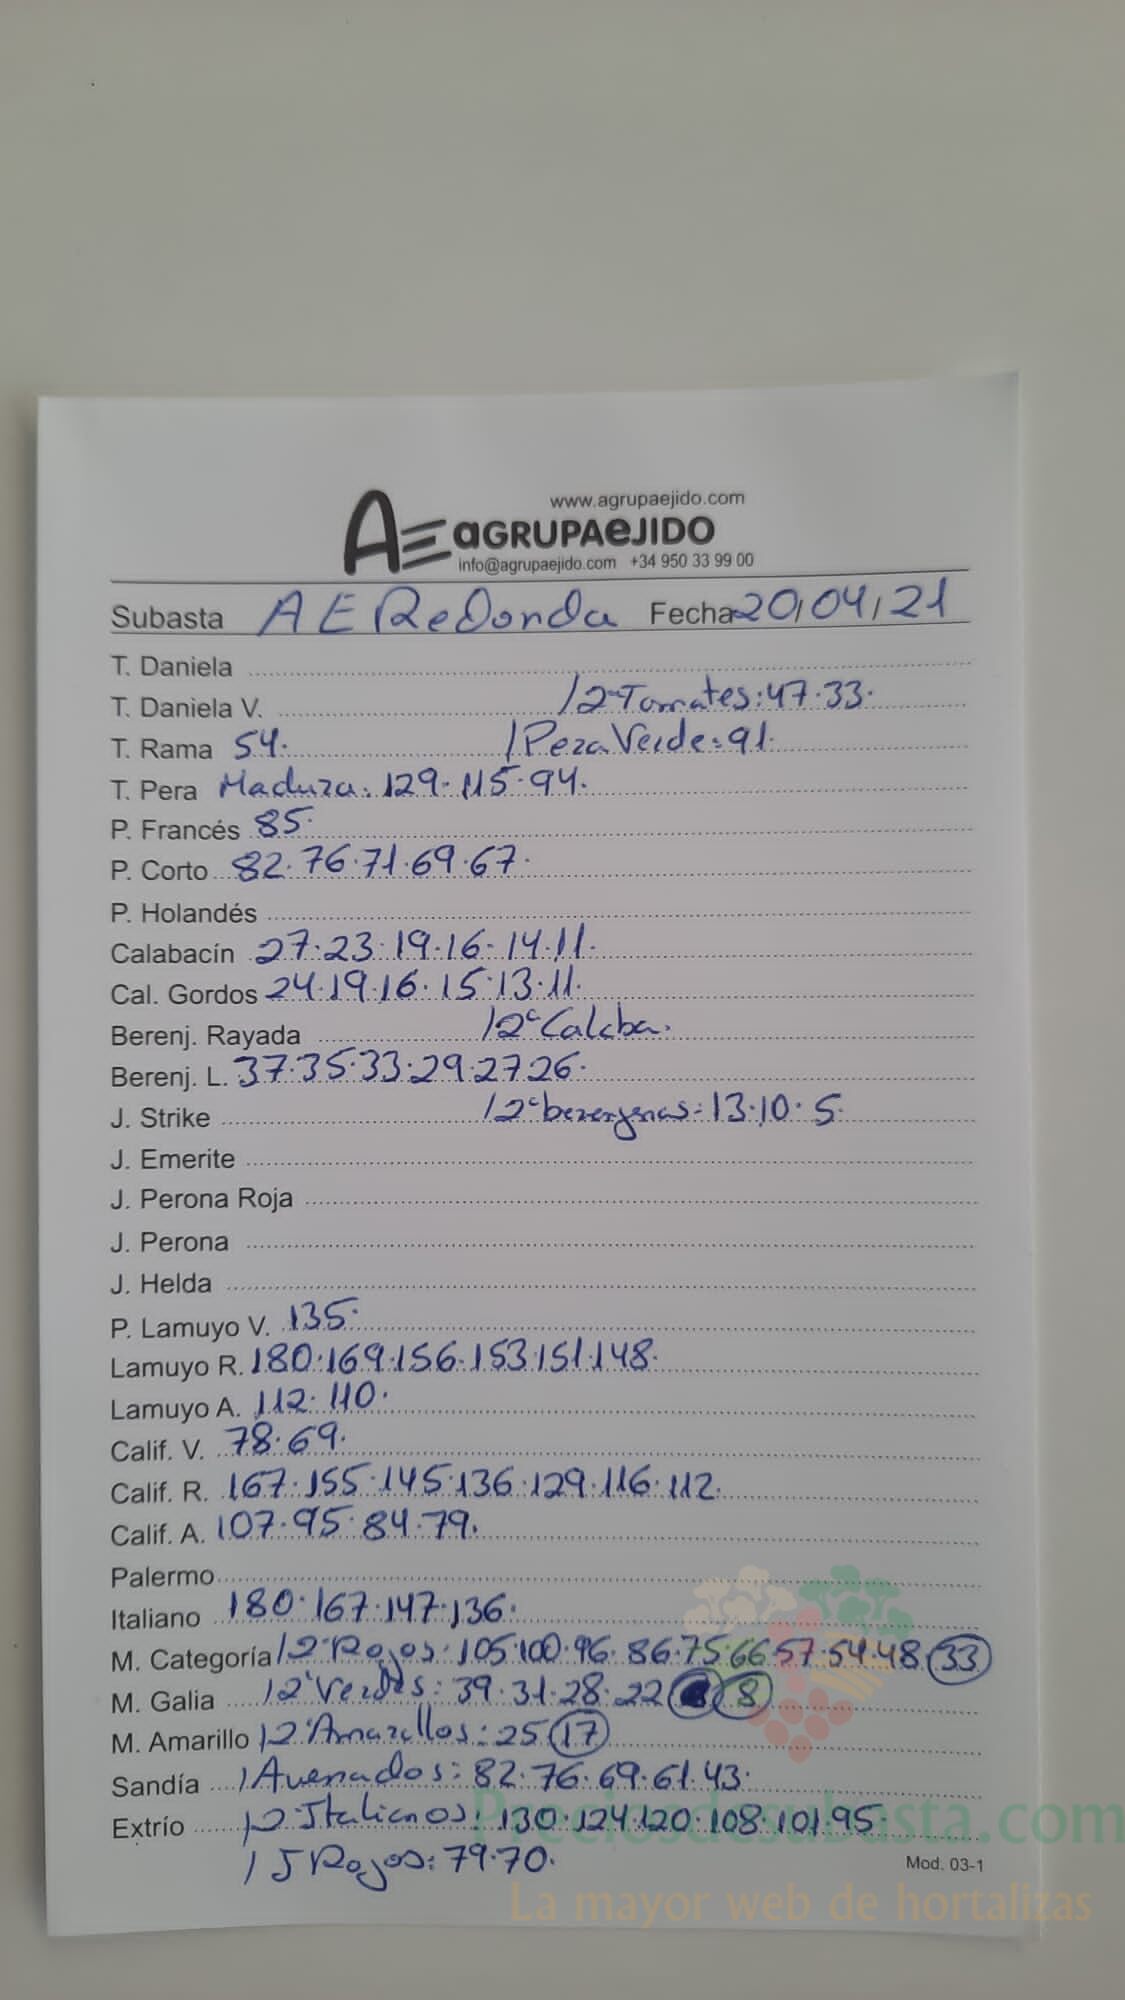 www.agrupaejido.com
AE aGRUPAeJIDO
info@agrupaejido.com +34 950 33 99 00
Subasta AE Redonda Fecha 20/04/21
T. Daniela
T. Daniela V. /2ª Tomates: 47.33.
T. Rama 54. /Pera Verde: 91.
T. Pera Madura: 129.115.94.
P. Francés 85.
P. Corto 82.76.71.69.67.
P. Holandés
Calabacín 27.23.19.16.14.11.
Cal. Gordos 24.19.16.15.13.11.
Berenj. Rayada /2ª Calaba.
Berenj. L. 37.35.33.29.27.26.
J. Strike /2ª berenjenas: 13.10.5.
J. Emerite
J. Perona Roja
J. Perona
J. Helda
P. Lamuyo V. 135.
Lamuyo R. 180.169.156.153.151.148.
Lamuyo A. 112.110.
Calif. V. 78.69.
Calif. R. 167.155.145.136.129.116.112.
Calif. A. 107.95.84.79.
Palermo
Italiano 180.167.147.136.
M. Categoría /2ª Rojos: 105.100.96.86.75.66.57.54.48.33
M. Galia /2ª Verdes: 39.31.28.22 8
M. Amarillo /2ª Amarillos: 25.17
Sandía /Avenados: 82.76.69.61.43.
Extrío /2ª Italianos: 130.124.120.108.101.95.
/J Rojos: 79.70.
Mod. 03-1
Preciosdesubasta.com
La mayor web de hortalizas